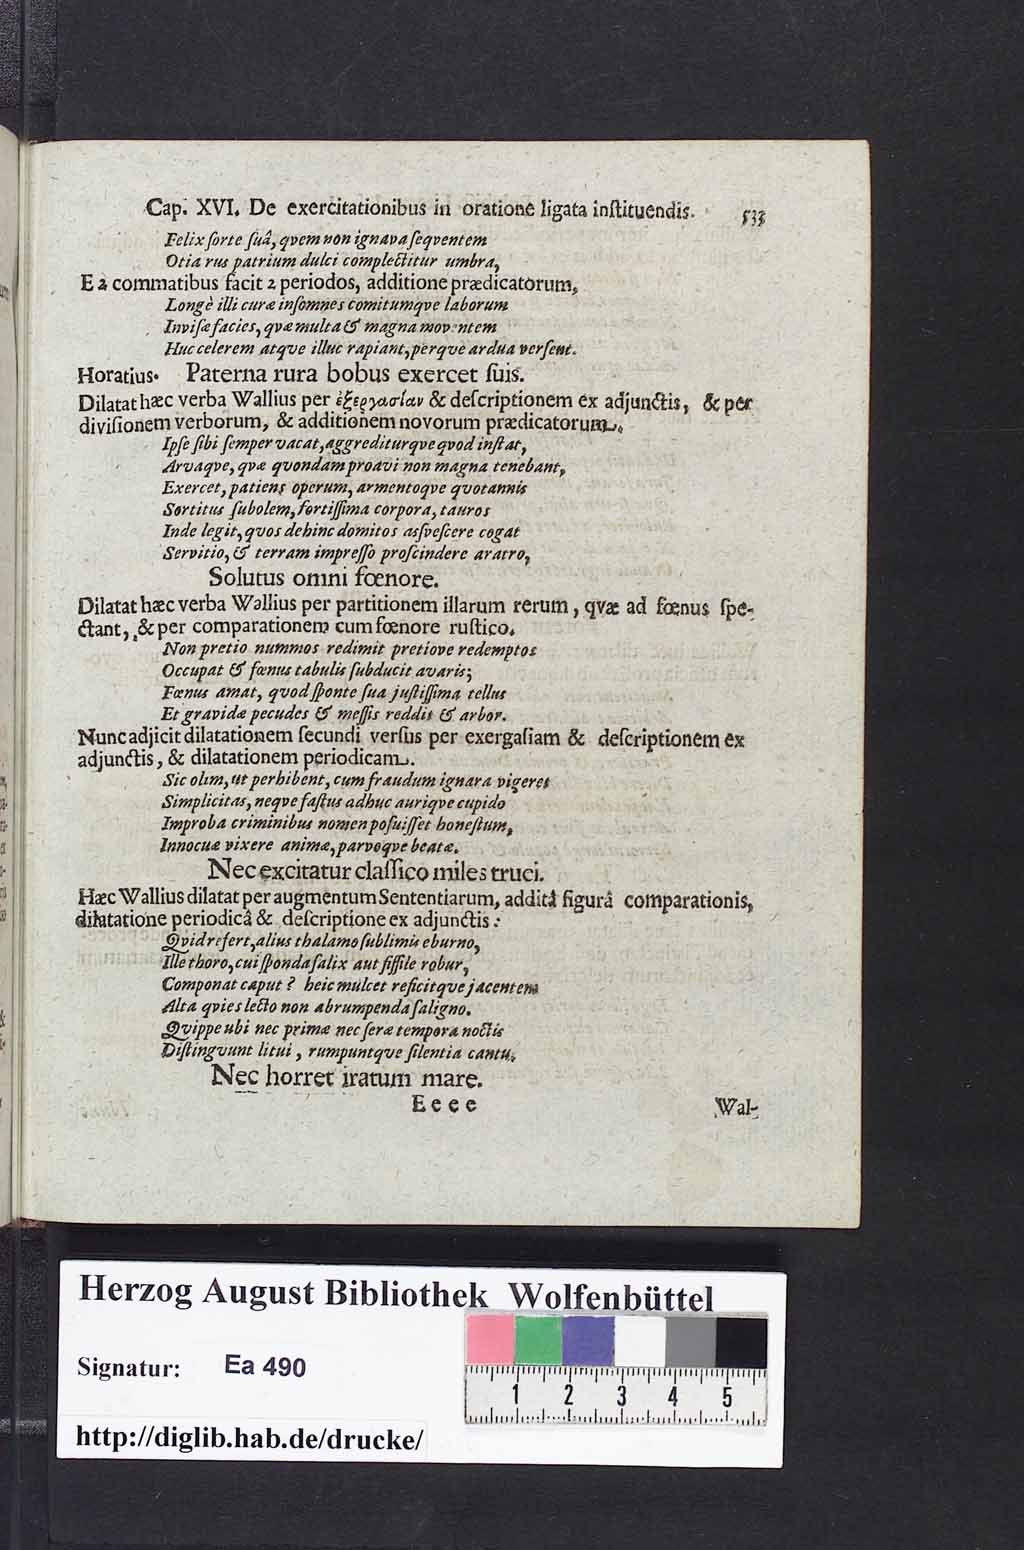 Cap. XVI. De exercitationibus in oratione ligata inſtituendis. 533
Felix ſorte ſuâ, qvem non ignava ſeqventem
Otia rus patrium dulci complectitur umbra,
E 2 commatibus facit 2 periodos, additione prædicatorum,
Longè illi curæ inſomnes comitumqve laborum
Inviſæ facies, qvæ multa & magna moventem
Huc celerem atqve illuc rapiant, perqve ardua verſent.
Horatius. Paterna rura bobus exercet ſuis.
Dilatat hæc verba Wallius per ἐξεργασίαν & deſcriptionem ex adjunctis, & per
diviſionem verborum, & additionem novorum prædicatorum.
Ipſe ſibi ſemper vacat, aggrediturqve qvod inſtat,
Arvaqve, qvæ qvondam proavi non magna tenebant,
Exercet, patiens operum, armentoqve qvotannis
Sortitus ſubolem, fortiſſima corpora, tauros
Inde legit, qvos dehinc domitos asſveſcere cogat
Servitio, & terram impreſſo proſcindere aratro,
Solutus omni fœnore.
Dilatat hæc verba Wallius per partitionem illarum rerum, qvæ ad fœnus ſpe-
ctant, & per comparationem cum fœnore ruſtico.
Non pretio nummos redimit pretiove redemptos
Occupat & fœnus tabulis ſubducit avaris;
Fœnus amat, quod ſponte ſua juſtiſſima tellus
Et gravidæ pecudes & meſſis reddit & arbor.
Nunc adjicit dilatationem ſecundi verſus per exergaſiam & deſcriptionem ex
adjunctis, & dilatationem periodicam.
Sic olim, ut perhibent, cum fraudum ignara vigeret
Simplicitas, neqve faſtus adhuc auriqve cupido
Improba criminibus nomen poſuiſſet honeſtum,
Innocuæ vixere animæ, parvoqve beatæ.
Nec excitatur claſſico miles truci.
Hæc Wallius dilatat per augmentum Sententiarum, additâ figurâ comparationis,
dilatatione periodicâ & deſcriptione ex adjunctis:
Qvid refert, alius thalamo ſublimis eburno,
Ille thoro, cui ſponda ſalix aut fiſſile robur,
Componat caput? heic mulcet reficitqve jacentem
Alta qvies lecto non abrumpenda ſaligno.
Qvippe ubi nec primæ nec ſeræ tempora noctis
Diſtingvunt litui, rumpuntqve ſilentia cantu.
Nec horret iratum mare.
Eeee Wal-
Herzog August Bibliothek Wolfenbüttel
Signatur: Ea 490
1 2 3 4 5
http://diglib.hab.de/drucke/